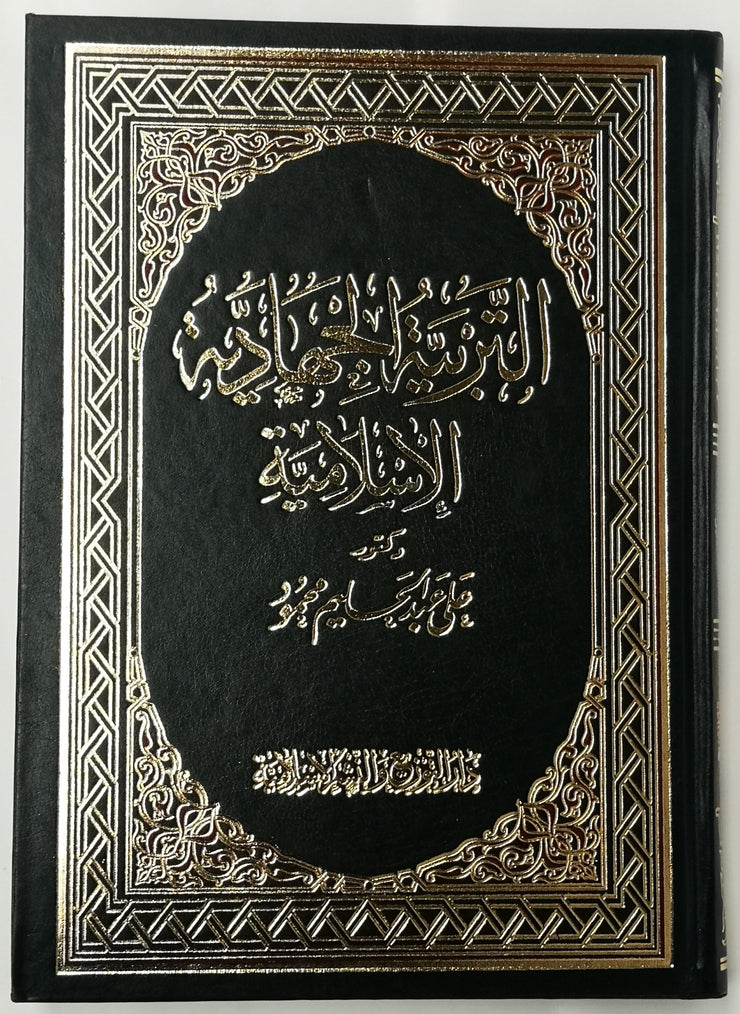 التَّرْبِيَّةُ الجِهَادِيَّةُ
الإِسْلَامِيَّةِ
دكتور
علي عبد الحليم محمود
دار التوزيع والنشر الإسلامية